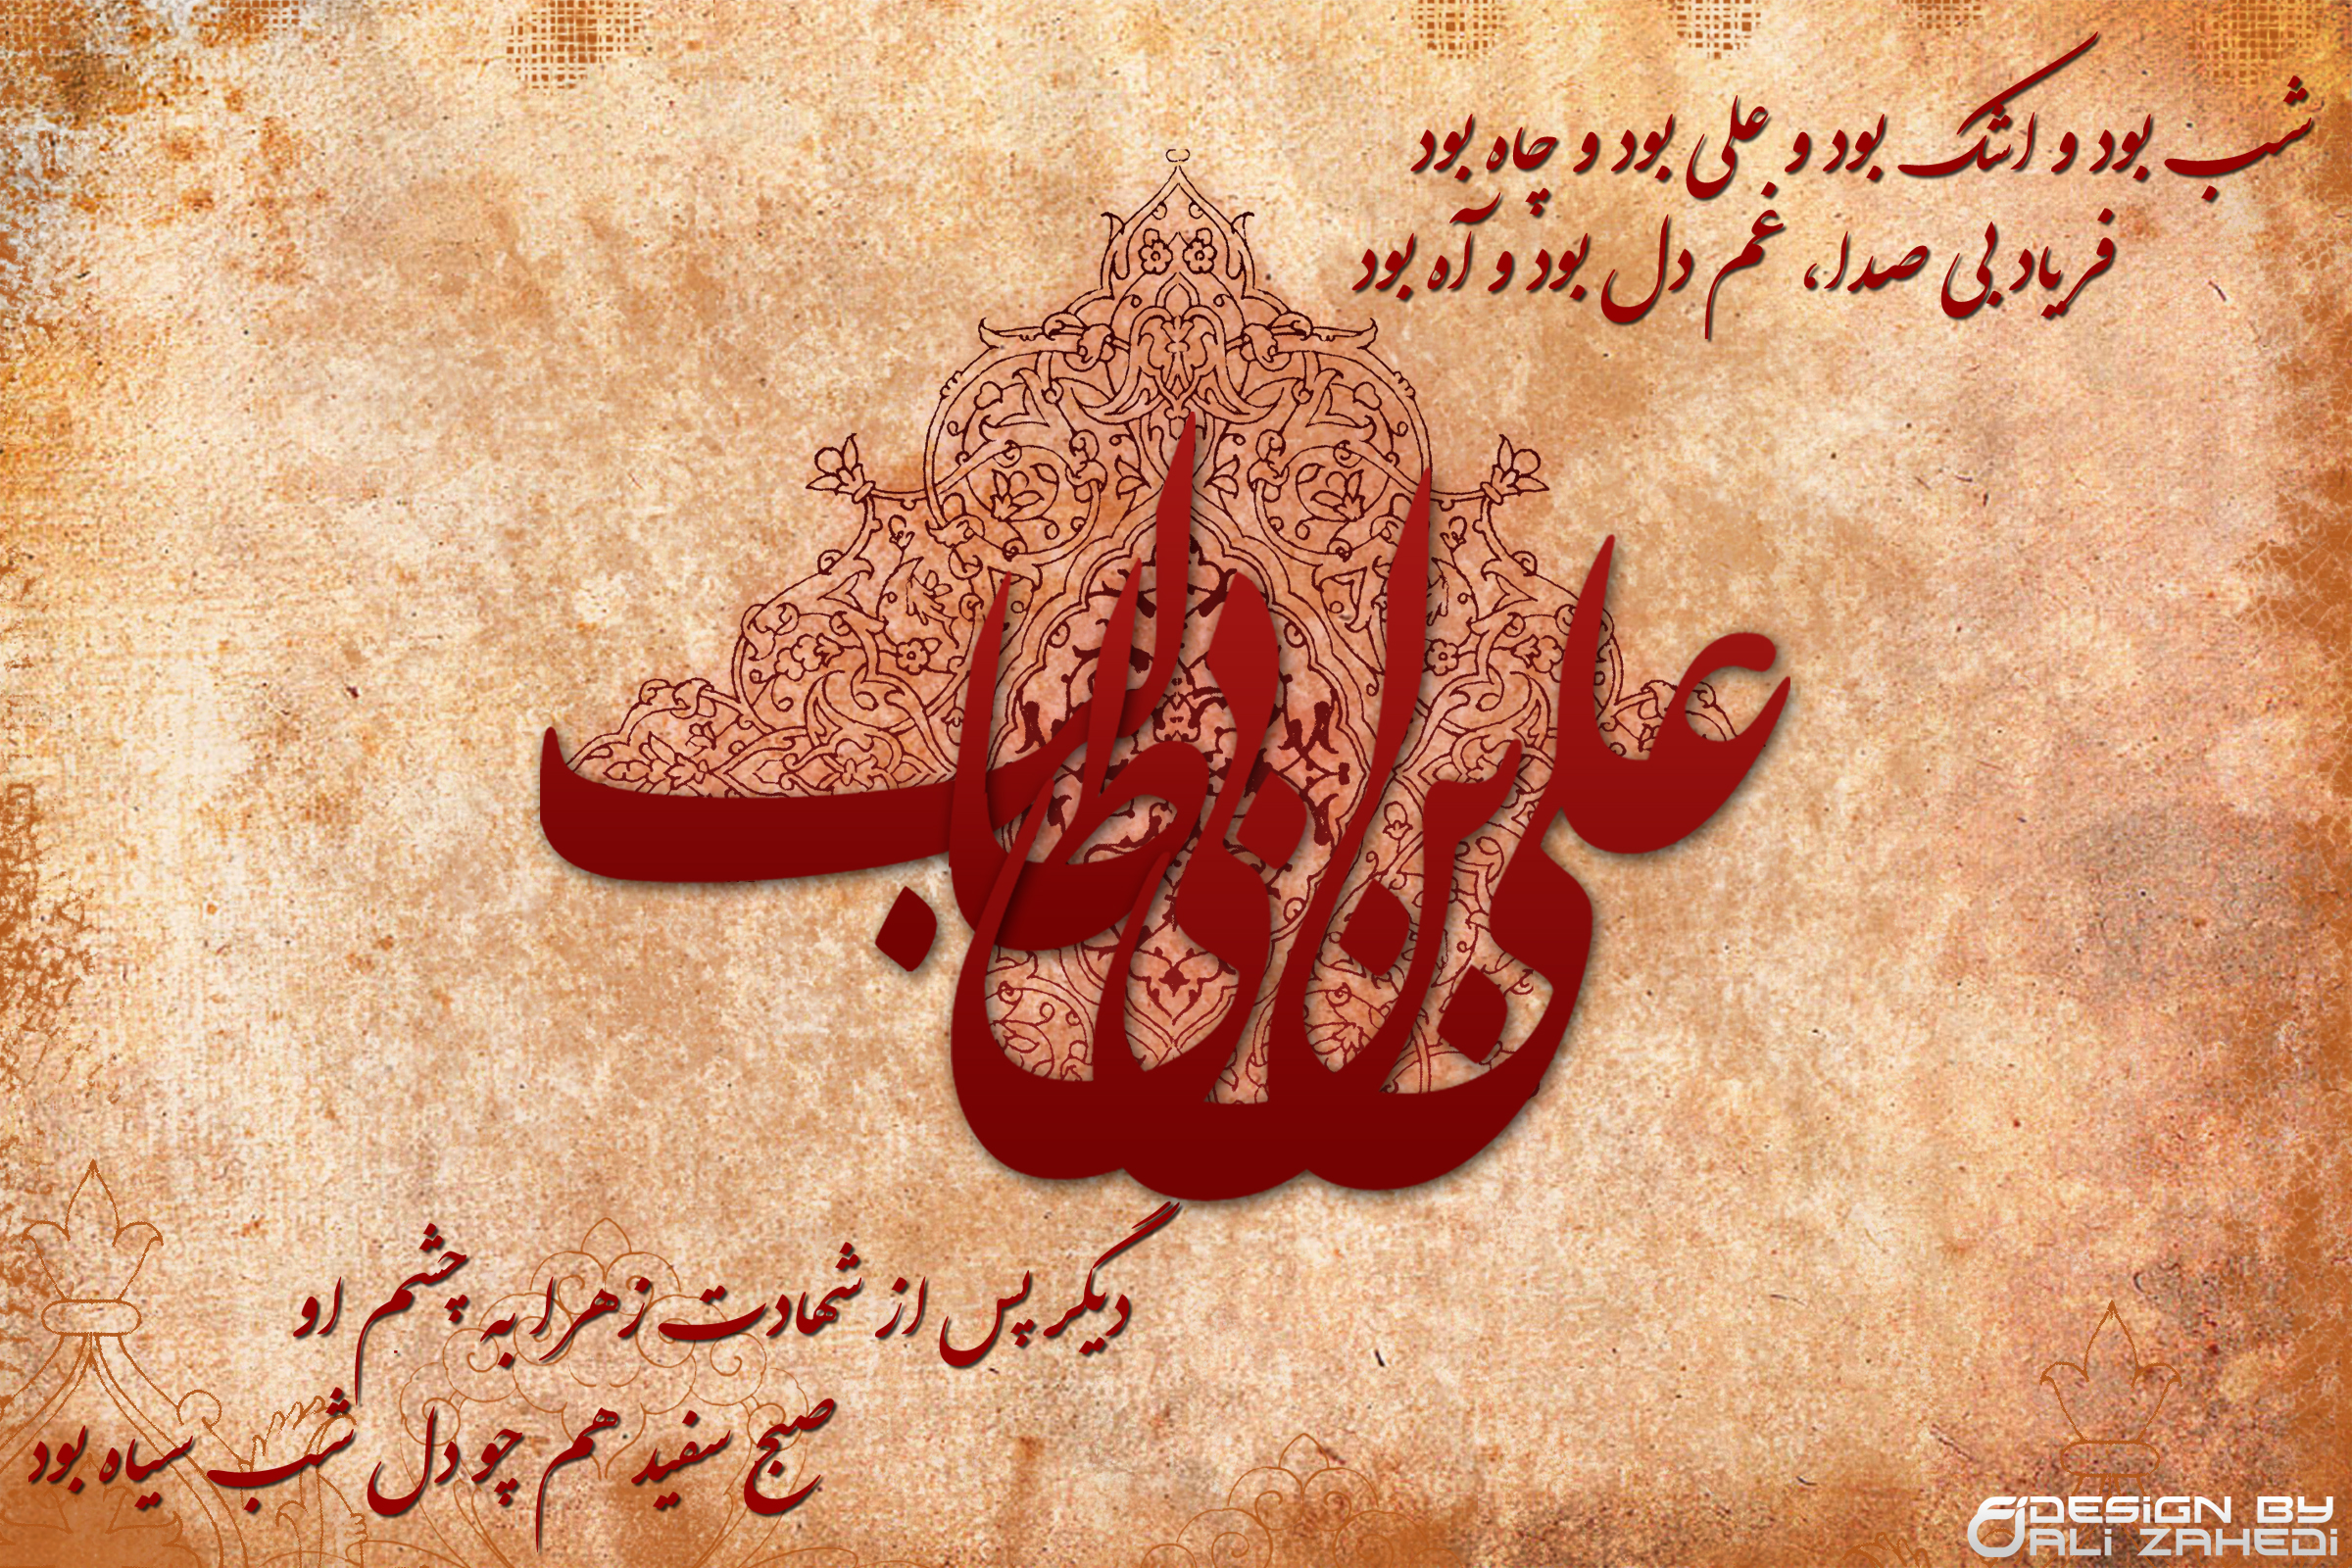 شب بود و اشک بود و علی بود و چاه بود
فریاد بی صدا، غم دل بود و آه بود
علی بن ابی طالب
دیگر پس از شهادت زهرا به چشم او
صبح سفید هم چو دل شب سیاه بود
DESIGN BY
ALI ZAHEDI